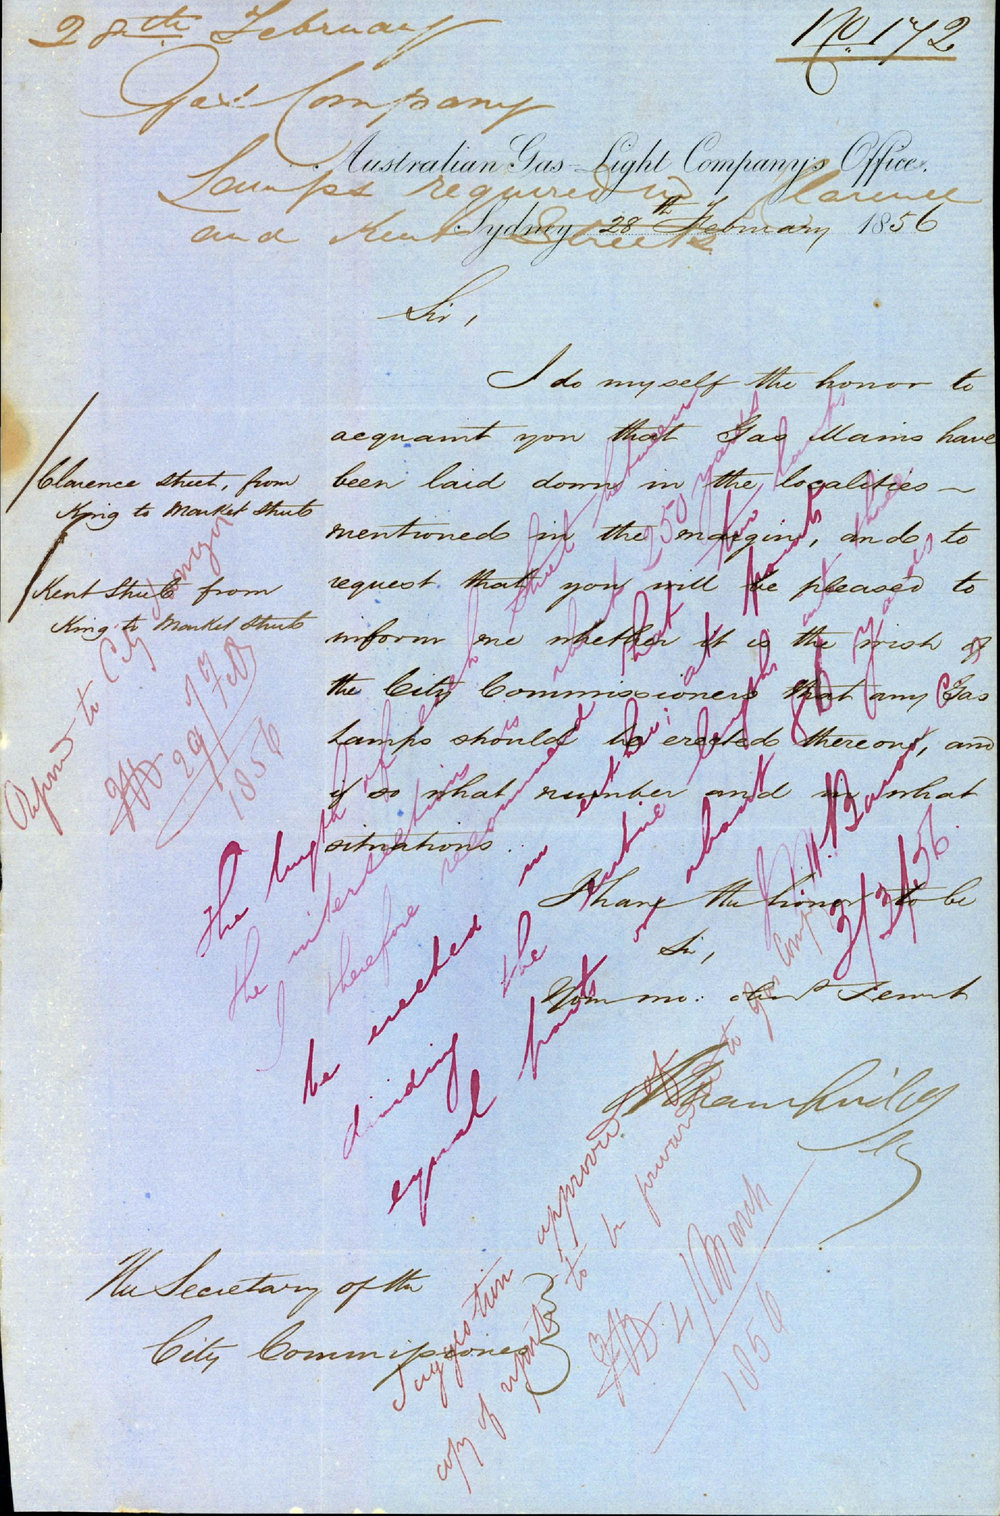 28th February
No. 172
Gas Company
Lamps required in Clarence
and Kent Streets
Australian Gas-Light Company's Office,
Sydney 28th February 1856
Sir,
I do myself the honor to
acquaint you that Gas Mains have
been laid down in the localities
mentioned in the margin, and to
request that you will be pleased to
inform me whether it is the wish of
the City Commissioners that any Gas
Lamps should be erected thereon, and
if so what number and in what
situations.
I have the honor to be
Sir,
Your mo: obt Servt
Secy
Clarence Street, from
King to Market Streets
Kent Street from
King to Market Streets
The Secretary of the
City Commissioners
Report to City Surveyor
29/Feb
1856
The length of each street between
the intersections is about 250 yards
I therefore recommend that two lamps
be erected in each; at points
dividing the entire lengths into three
equal parts or about 80 yards
3/3/56
Suggestion approved of
copy of report to be forwarded to Gas Comp
4/March
1856